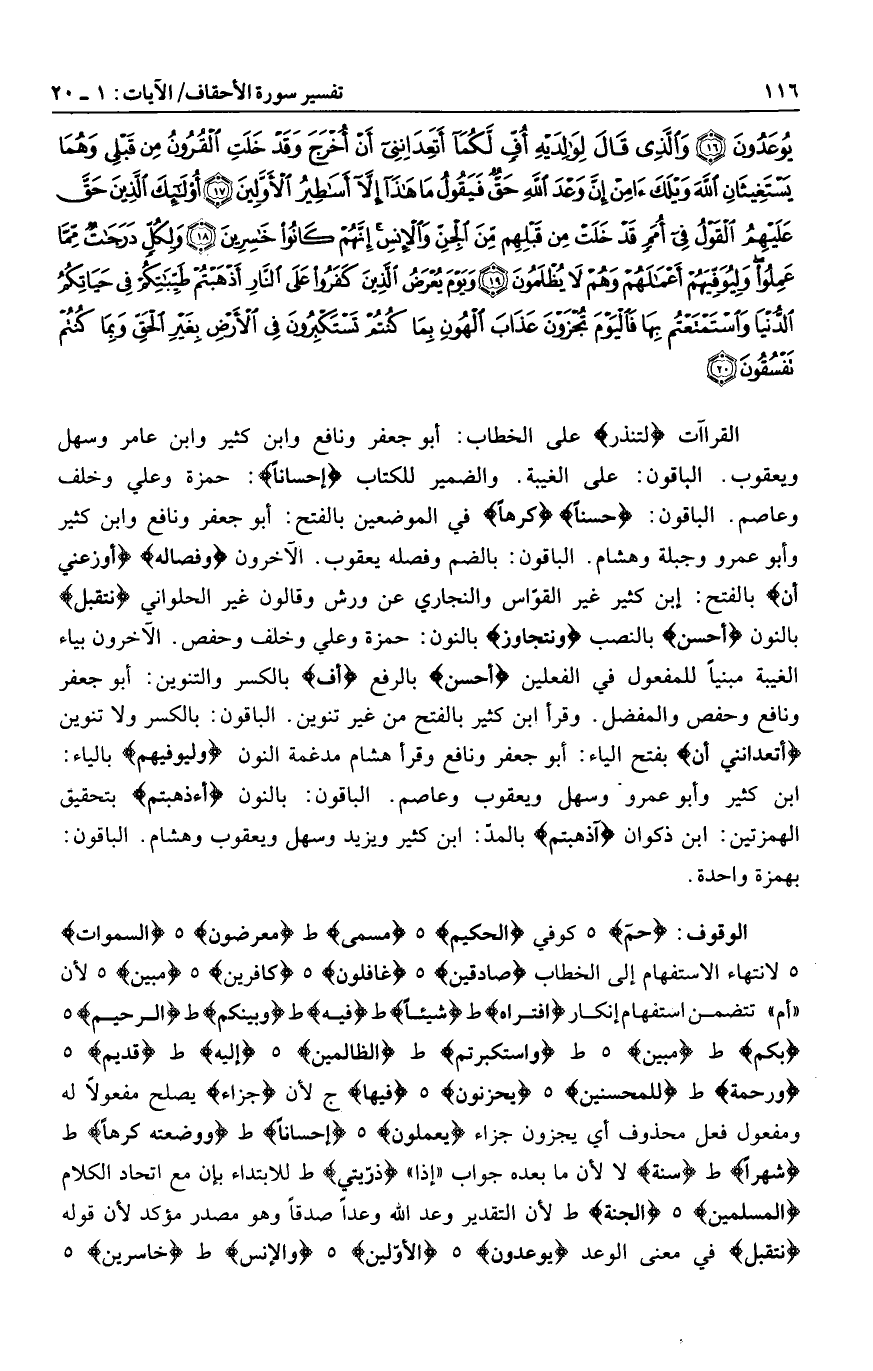 ١١٦ تفسير سورة الأحقاف/ الآيات: ١ ـ ٢٠
يُوعَدُونَ ﴿١٦﴾ وَٱلَّذِى قَالَ لِوَٰلِدَيْهِ أُفٍّ لَّكُمَآ أَتَعِدَانِنِىٓ أَنْ أُخْرَجَ وَقَدْ خَلَتِ ٱلْقُرُونُ مِن قَبْلِى وَهُمَا
يَسْتَغِيثَانِ ٱللَّهَ وَيْلَكَ ءَامِنْ إِنَّ وَعْدَ ٱللَّهِ حَقٌّ فَيَقُولُ مَا هَٰذَآ إِلَّآ أَسَٰطِيرُ ٱلْأَوَّلِينَ ﴿١٧﴾ أُو۟لَٰٓئِكَ ٱلَّذِينَ حَقَّ
عَلَيْهِمُ ٱلْقَوْلُ فِىٓ أُمَمٍ قَدْ خَلَتْ مِن قَبْلِهِم مِّنَ ٱلْجِنِّ وَٱلْإِنسِ إِنَّهُمْ كَانُوا۟ خَٰسِرِينَ ﴿١٨﴾ وَلِكُلٍّ دَرَجَٰتٌ مِّمَّا
عَمِلُوا۟ وَلِيُوَفِّيَهُمْ أَعْمَٰلَهُمْ وَهُمْ لَا يُظْلَمُونَ ﴿١٩﴾ وَيَوْمَ يُعْرَضُ ٱلَّذِينَ كَفَرُوا۟ عَلَى ٱلنَّارِ أَذْهَبْتُمْ طَيِّبَٰتِكُمْ فِى حَيَاتِكُمُ
ٱلدُّنْيَا وَٱسْتَمْتَعْتُم بِهَا فَٱلْيَوْمَ تُجْزَوْنَ عَذَابَ ٱلْهُونِ بِمَا كُنتُمْ تَسْتَكْبِرُونَ فِى ٱلْأَرْضِ بِغَيْرِ ٱلْحَقِّ وَبِمَا كُنتُمْ
تَفْسُقُونَ ﴿٢٠﴾
القراآت ﴿لتنذر﴾ على الخطاب: أبو جعفر ونافع وابن كثير وابن عامر وسهل
ويعقوب. الباقون: على الغيبة. والضمير للكتاب ﴿إحساناً﴾: حمزة وعلي وخلف
وعاصم. الباقون: ﴿حسناً﴾ ﴿كرهاً﴾ في الموضعين بالفتح: أبو جعفر ونافع وابن كثير
وأبو عمرو وجبلة وهشام. الباقون: بالضم وفصله يعقوب. الآخرون ﴿وفصاله﴾ ﴿أوزعني
أن﴾ بالفتح: إبن كثير غير القوّاس والنجاري عن ورش وقالون غير الحلواني ﴿نتقبل﴾
بالنون ﴿أحسن﴾ بالنصب ﴿ونتجاوز﴾ بالنون: حمزة وعلي وخلف وحفص. الآخرون بياء
الغيبة مبنياً للمفعول في الفعلين ﴿أحسن﴾ بالرفع ﴿أف﴾ بالكسر والتنوين: أبو جعفر
ونافع وحفص والمفضل. وقرأ ابن كثير بالفتح من غير تنوين. الباقون: بالكسر ولا تنوين
﴿أتعدانني أن﴾ بفتح الياء: أبو جعفر ونافع وقرأ هشام مدغمة النون ﴿وليوفيهم﴾ بالياء:
ابن كثير وأبو عمرو وسهل ويعقوب وعاصم. الباقون: بالنون ﴿أءذهبتم﴾ بتحقيق
الهمزتين: ابن ذكوان ﴿آذهبتم﴾ بالمدّ: ابن كثير ويزيد وسهل ويعقوب وهشام. الباقون:
بهمزة واحدة.
الوقوف: ﴿حمّ﴾ ٥ كوفي ﴿الحكيم﴾ ٥ ﴿مسمى﴾ ط ﴿معرضون﴾ ٥ ﴿السموات﴾
٥ لانتهاء الاستفهام إلى الخطاب ﴿صادقين﴾ ٥ ﴿غافلون﴾ ٥ ﴿كافرين﴾ ٥ ﴿مبين﴾ ٥ لأن
«أم» تتضمـن استفهام إنكـار ﴿افتـراه﴾ ط ﴿شيئـاً﴾ ط ﴿فيـه﴾ ط ﴿وبينكم﴾ ط ﴿الـرحيـم﴾ ٥
﴿بكم﴾ ط ﴿مبين﴾ ٥ ط ﴿واستكبرتم﴾ ط ﴿الظالمين﴾ ٥ ﴿إليه﴾ ط ﴿قديم﴾ ٥
﴿ورحمة﴾ ط ﴿للمحسنين﴾ ٥ ﴿يحزنون﴾ ٥ ﴿فيها﴾ ج لأن ﴿جزاء﴾ يصلح مفعولاً له
ومفعول فعل محذوف أي يجزون جزاء ﴿يعملون﴾ ٥ ﴿إحساناً﴾ ط ﴿ووضعته كرهاً﴾ ط
﴿شهراً﴾ ط ﴿سنة﴾ لا لأن ما بعده جواب «إذا» ﴿ذرّيتي﴾ ط للابتداء بإن مع اتحاد الكلام
﴿المسلمين﴾ ٥ ﴿الجنة﴾ ط لأن التقدير وعد الله وعداً صدقاً وهو مصدر مؤكد لأن قوله
﴿نتقبل﴾ في معنى الوعد ﴿يوعدون﴾ ٥ ﴿الأوّلين﴾ ٥ ﴿والإنس﴾ ط ﴿خاسرين﴾ ٥